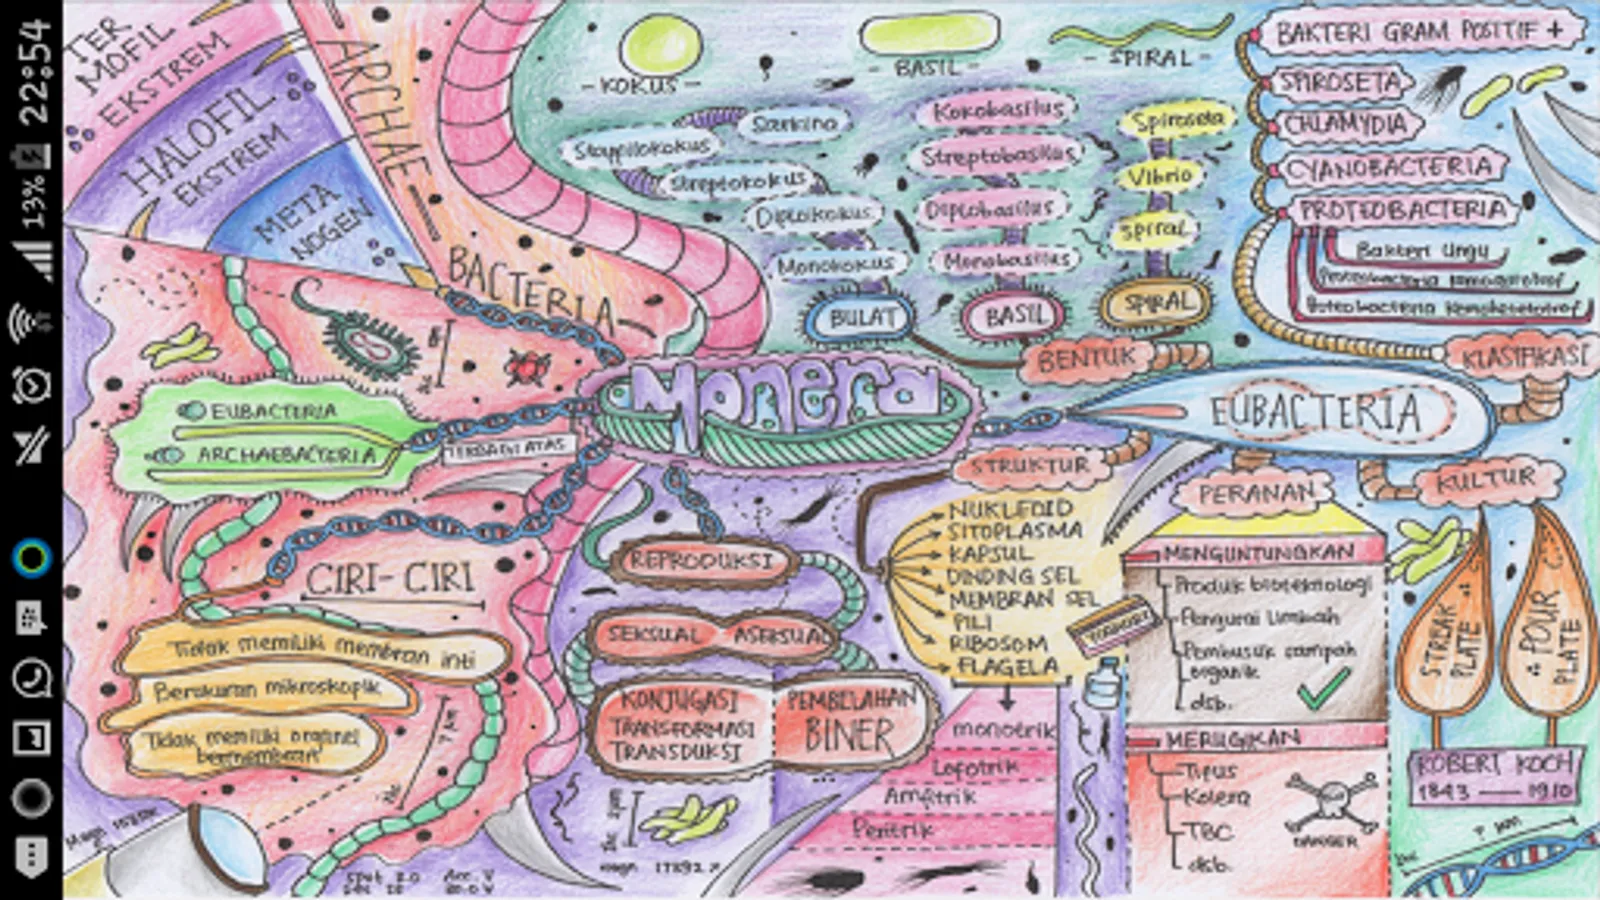 22:54
13%
TER
MOFIL
EKSTREM
HALOFIL
EKSTREM
META
NOGEN
ARCHAE
BACTERIA
EUBACTERIA
ARCHAEBACTERIA
TERBAGI ATAS
CIRI-CIRI
Tidak memiliki membran inti
Berukuran mikroskopik
Tidak memiliki organel
bermembran
Monera
- KOKUS -
- BASIL -
- SPIRAL -
Sarkina
Stapilokokus
Streptokokus
Diplokokus
Monokokus
BULAT
Kokobasilus
Streptobasilus
Diplobasilus
Monobasilus
BASIL
Spiroseta
Vibrio
Spiral
SPIRAL
BENTUK
BAKTERI GRAM POSITIF +
SPIROSETA
CHLAMYDIA
CYANOBACTERIA
PROTEOBACTERIA
Bakteri Ungu
KLASIFIKASI
EUBACTERIA
STRUKTUR
NUKLEOID
SITOPLASMA
KAPSUL
DINDING SEL
MEMBRAN SEL
PILI
RIBOSOM
FLAGELA
monotrik
Lofotrik
Amfitrik
Peritrik
REPRODUKSI
SEKSUAL
ASEKSUAL
KONJUGASI
TRANSFORMASI
TRANSDUKSI
PEMBELAHAN
BINER
PERANAN
MENGUNTUNGKAN
Produk bioteknologi
Pengurai limbah
Pembusuk sampah
organik
dsb.
YOGHURT
MERUGIKAN
Tipus
Kolera
TBC
dsb.
DANGER
KULTUR
STREAK
PLATE
POUR
PLATE
ROBERT KOCH
1843 — 1910